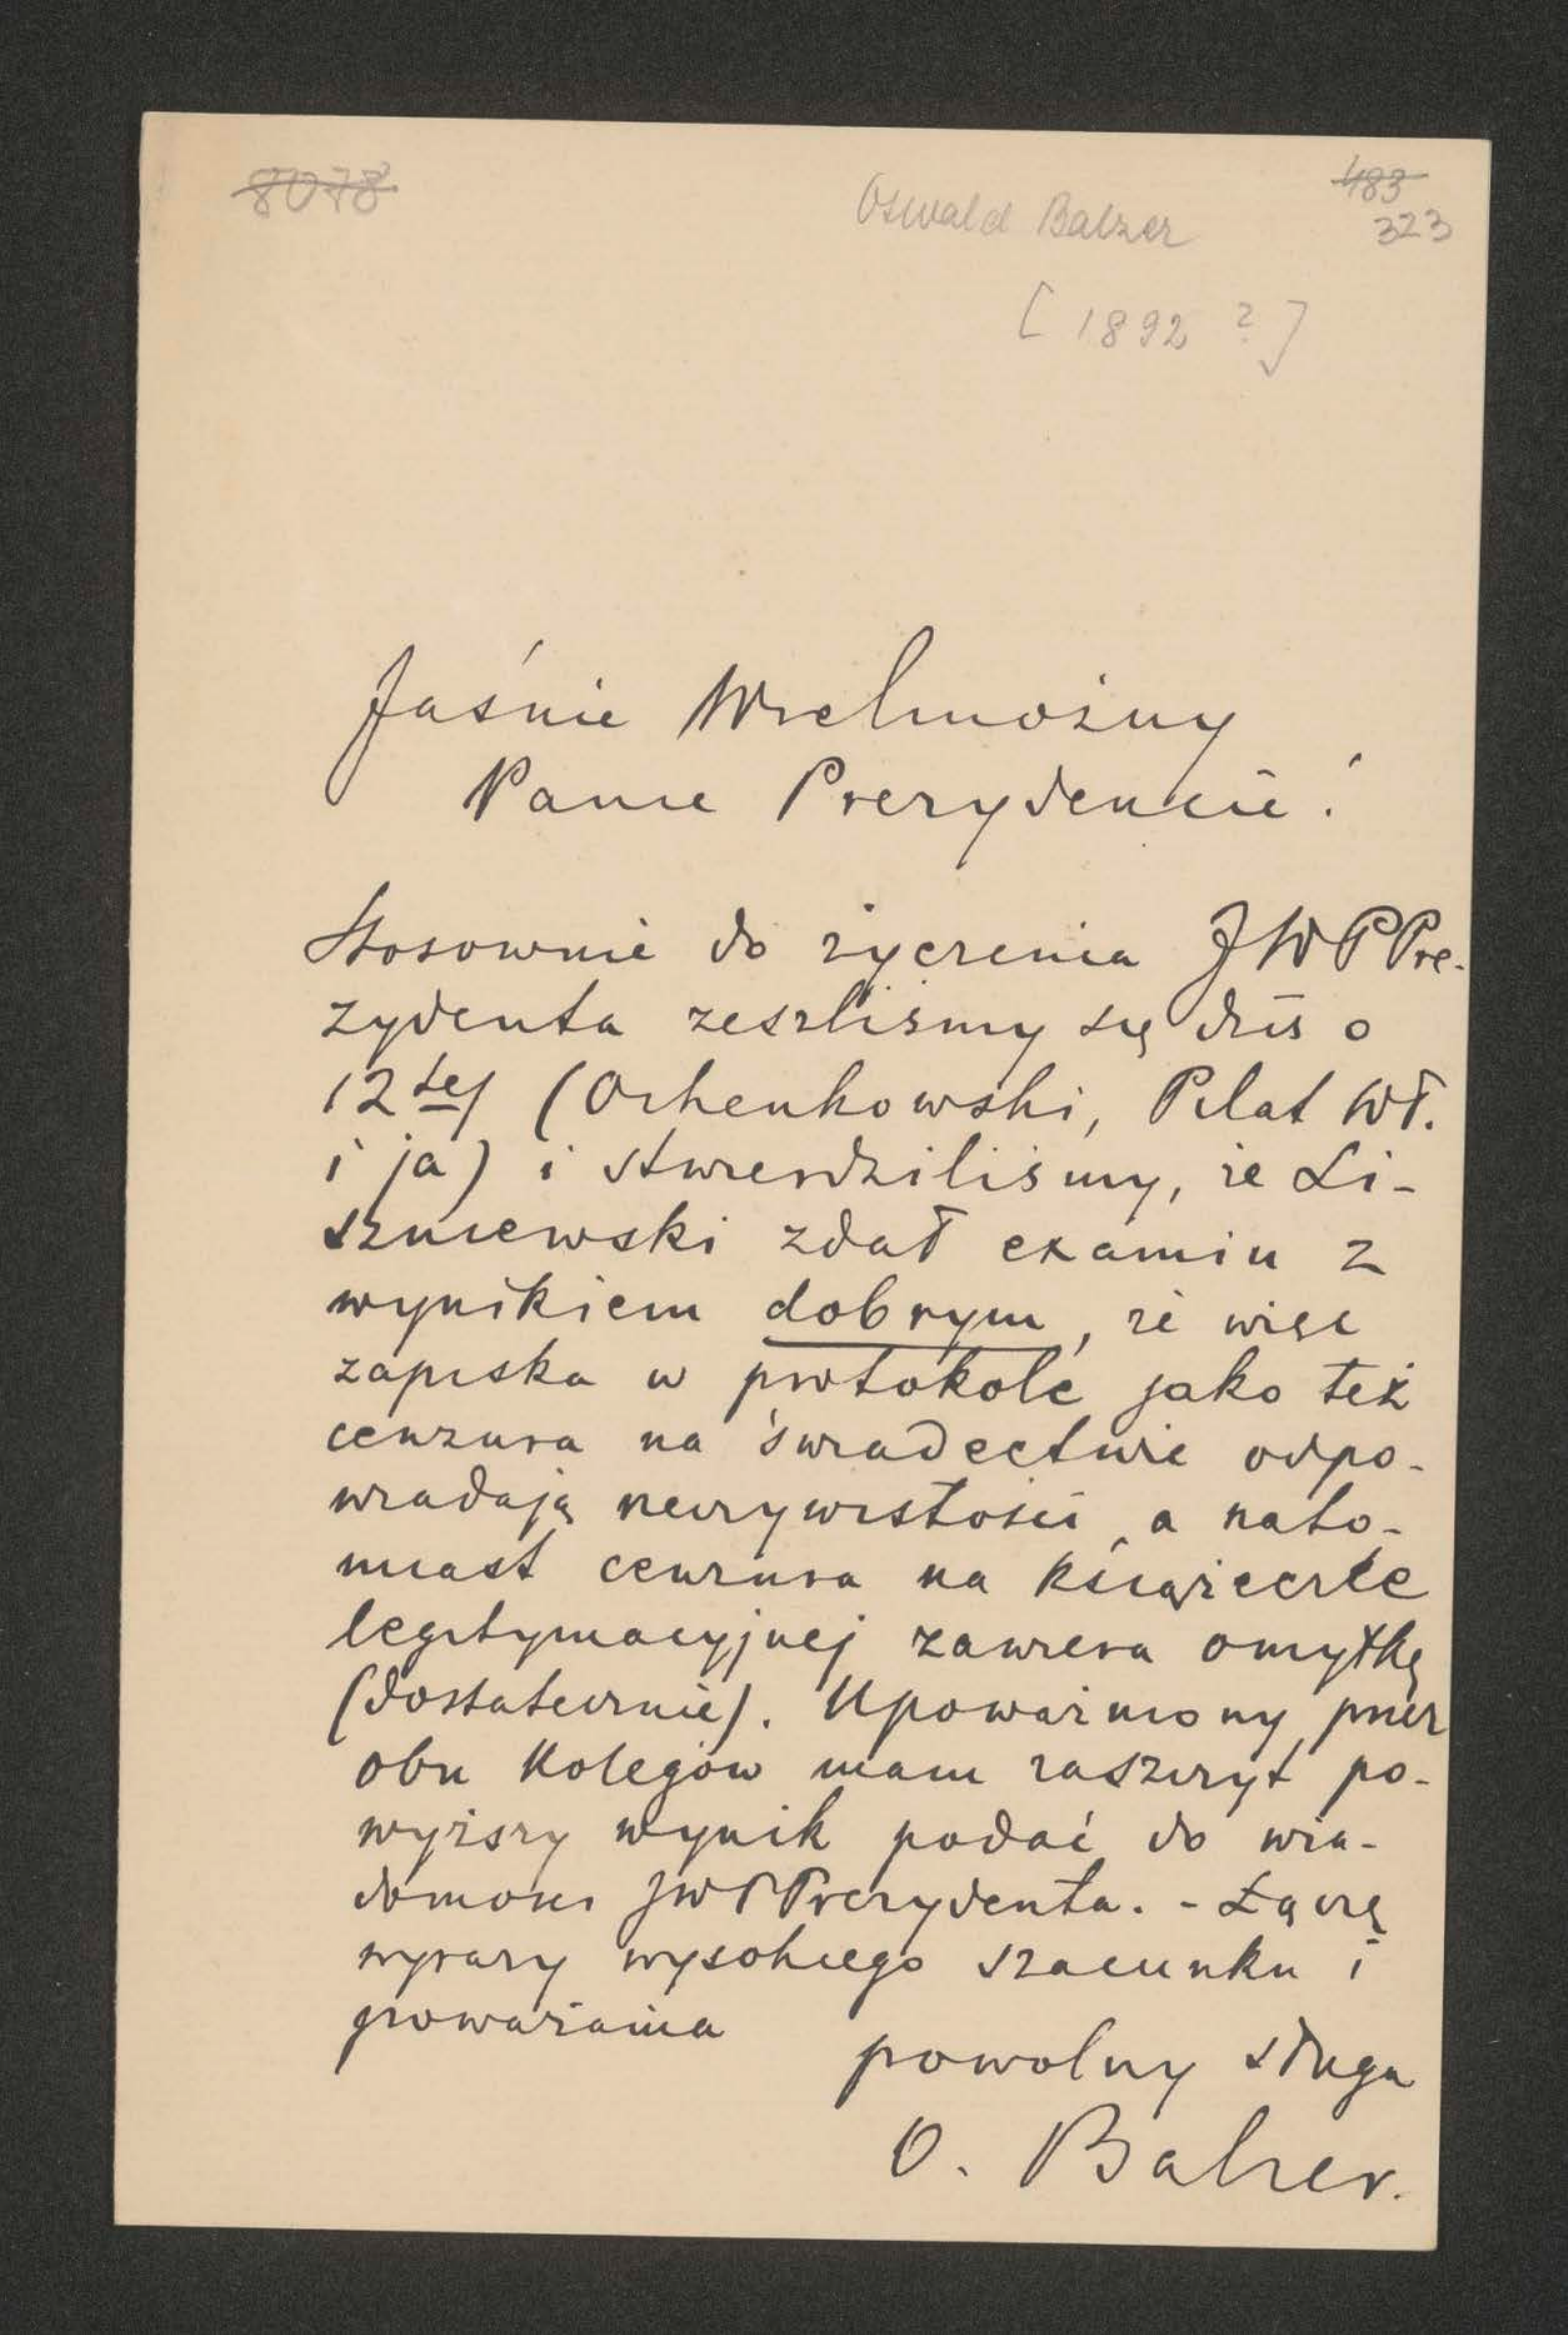 8078
Oswald Balzer
483
323
[1892 ?]
Jaśnie Wielmożny
Panie Prezydencie!
Stosownie do życzenia JWPPre-
zydenta zeszliśmy się dziś o
12tej (Ochenkowski, Pilat Wł.
i ja) i stwierdziliśmy, że Li-
szniewski zdał examin z
wynikiem dobrym, że więc
zapiska w protokole jako też
cenzura na świadectwie odpo-
wiadają rzeczywistości, a nato-
miast cenzura na książeczce
legitymacyjnej zawiera omyłkę
(dostatecznie). Upoważniony przez
obu Kolegów mam zaszczyt po-
wyższy wynik podać do wia-
domości JWPPrezydenta. - Łączę
wyrazy wysokiego szacunku i
poważania
powolny sługa
O. Balzer.